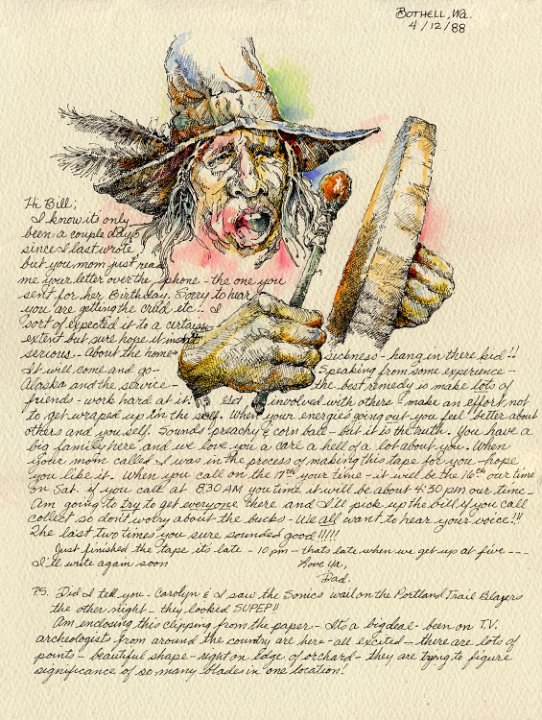 BOTHELL, Wa.
4/12/88
Hi Bill;
I know its only
been a couple days
since I last wrote
but you mom just read
me your letter over the phone - the one you
sent for her Birthday. Sorry to hear
you are getting the crud etc - I
sort of expected it to a certain
extent but sure hope it isn't
serious - About the home sickness - hang in there kid!!
it will come and go - Speaking from some experience -
Alaska and the service - the best remedy is make lots of
friends - work hard at it. Get involved with others - make an effort not
to get wraped up in the self. When your energies going out you feel better about
others and you self. Sounds preachy & corn ball - but it is the truth. You have a
big family here and we love you a care a hell of a lot about you. When
your mom called I was in the process of making this tape for you - hope
you like it. When you call on the 17th your time - it will be the 16th our time
on Sat. if you call at 8:30 AM you time it will be about 4:30 pm our time -
Am going to try to get everyone there and I'll pick up the bill if you call
collect so don't worry about the bucks - We all want to hear your voice!!!
The last two times you sure sounded good!!!!!
Just finished the tape its late - 10 pm - thats late when we get up at five ---
I'll write again soon Love Ya,
Dad.
P.S. Did I tell you - Carolyn & I saw the Sonics wail on the Portland Trail Blazers
the other night - they looked SUPEP!!
Am enclosing this clipping from the paper - Its a big deal - been on T.V.
archeologists from around the country are here - all excited - there are lots of
points - beautiful shape - right on edge of orchard - they are trying to figure
significance of so many blades in one location!